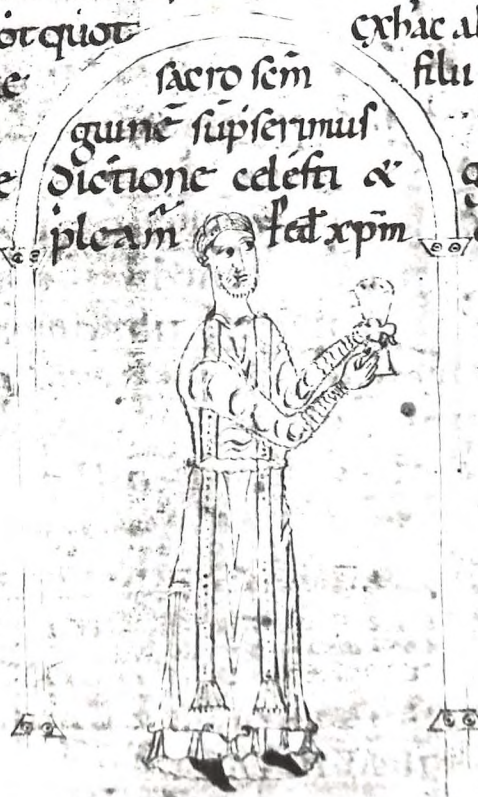 otquot exhac al
sacro scm̄ filii
guinē sūpserimus
dictione celesti &
pleam̃ ꝑ ed̄ xp̄m